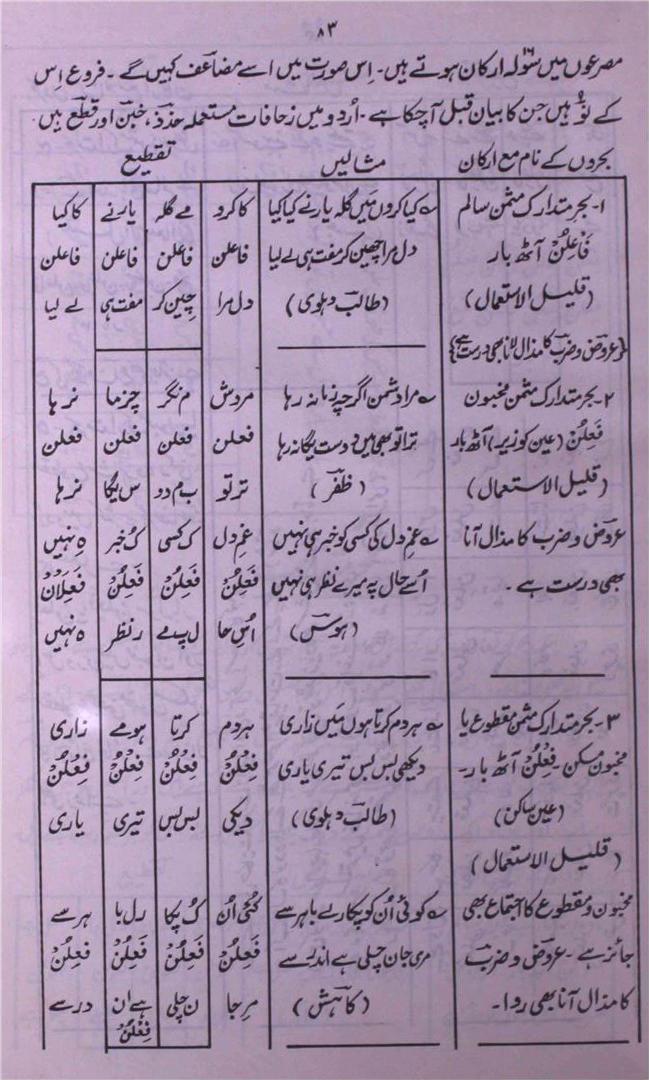 ۸۳
مصرعوں میں سولہ ارکان ہوتے ہیں۔ اِس صورت میں اسے مضاعف کہیں گے ۔ فروع اِس
کے نَو ہیں جن کا بیان قبل آچکا ہے ۔ اُردو میں زحافات مستعملہ حذذ، خبن اور قطع ہیں ۔
بحروں کے نام مع ارکان مثالیں تقطیع
۱۔ بحر متدارک مثمن سالم کیا کروں میں گلہ یار نے کیا کیا کا کرو مے گلہ یار نے کا کیا
فَاعِلُنْ آٹھ بار دل مرا چھین کر مفت ہی لے لیا فاعلن فاعلن فاعلن فاعلن
(قلیل الاستعمال) (طالب دہلوی) دل مرا چین کر مفت ہی لے لیا
{عروض و ضرب کا مذال لانا بھی درست ہے}
۲۔ بحر متدارک مثمن مخبون مرا دشمن اگرچہ زمانہ رہا مردش م نگر چزما نرہا
فَعِلُنْ (عین کو زیر) آٹھ بار ترا تو بھی میں دوست یگانہ رہا فعلن فعلن فعلن فعلن
(قلیل الاستعمال) (ظفر) ترتو ب م دو س یگا نرہا
عروض و ضرب کا مذال آنا غمِ دل کی کسی کو خبر ہی نہیں غمِ دل ک کسی کُ خبر ہِ نہیں
بھی درست ہے ۔ اُسے حال پہ میرے نظر ہی نہیں فَعِلُنْ فَعِلُنْ فَعِلُنْ فَعِلَانْ
(ہوس) اُسِ حا ل پ مے ر نظر ہ نہیں
۳۔ بحر متدارک مثمن مقطوع یا ہر دم کرتا ہوں میں زاری ہر دم کرتا ہو مے زاری
مخبون مسکن ۔ فِعْلُنْ آٹھ بار ۔ دیکھی بس بس تیری یاری فِعْلُنْ فِعْلُنْ فِعْلُنْ فِعْلُنْ
(عین ساکن) (طالب دہلوی) دیکی بس بس تیری یاری
(قلیل الاستعمال)
مخبون و مقطوع کا اجتماع بھی کوئی اُن کو پکار لے باہر سے کُئی اُن کُ پکا رلِ با ہر سے
جائز ہے ۔ عروض و ضرب مری جان چلی ہے اندر سے فَعِلُنْ فَعِلُنْ فَعِلُنْ فِعْلُنْ
کا مذال آنا بھی روا ۔ (کاہش) مرِ جا ن چلی ہے ان در سے
فِعْلُنْ